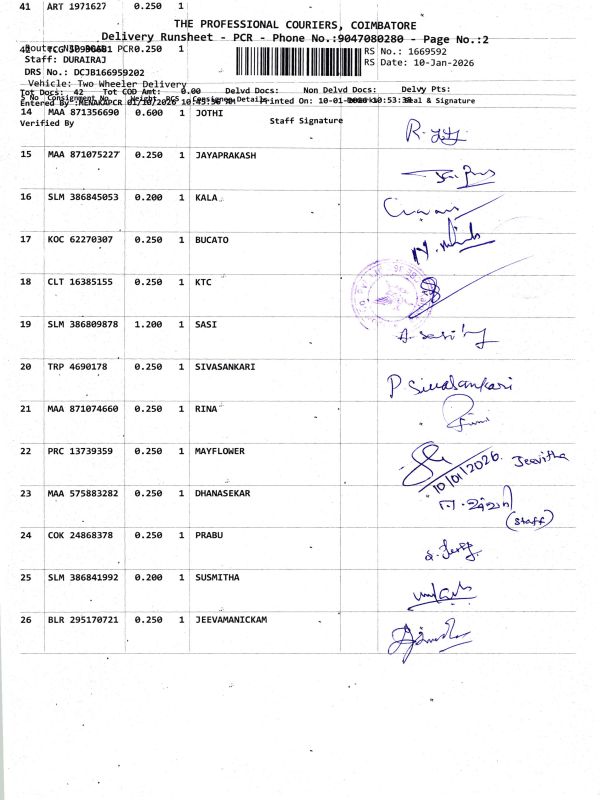 41 ART 1971627 0.250 1
THE PROFESSIONAL COURIERS, COIMBATORE
Delivery Runsheet - PCR - Phone No.:9047080280 - Page No.:2
PCR0.250 1
RS No.: 1669592
Staff: DURAIRAJ
RS Date: 10-Jan-2026
DRS No.: DCJB166959202
Vehicle: Two Wheeler Delivery
Tot Docs: 42 Tot COD Amt: 0.00 Delvd Docs: Non Delvd Docs: Delvy Pts:
S No Consignment No Weight PCS Consignee Details Seal & Signature
Entered By :MENAKAPCR 01/10/2026 10:45:56 AM Printed On: 10-01-2026 10:53:38
14 MAA 871356690 0.600 1 JOTHI
Verified By Staff Signature
15 MAA 871075227 0.250 1 JAYAPRAKASH
16 SLM 386845053 0.200 1 KALA
17 KOC 62270307 0.250 1 BUCATO
18 CLT 16385155 0.250 1 KTC
19 SLM 386809878 1.200 1 SASI
20 TRP 4690178 0.250 1 SIVASANKARI
P. Sivasankari
21 MAA 871074660 0.250 1 RINA
22 PRC 13739359 0.250 1 MAYFLOWER
10/01/2026. Jeevitha
23 MAA 575883282 0.250 1 DHANASEKAR
(staff)
24 COK 24868378 0.250 1 PRABU
25 SLM 386841992 0.200 1 SUSMITHA
26 BLR 295170721 0.250 1 JEEVAMANICKAM